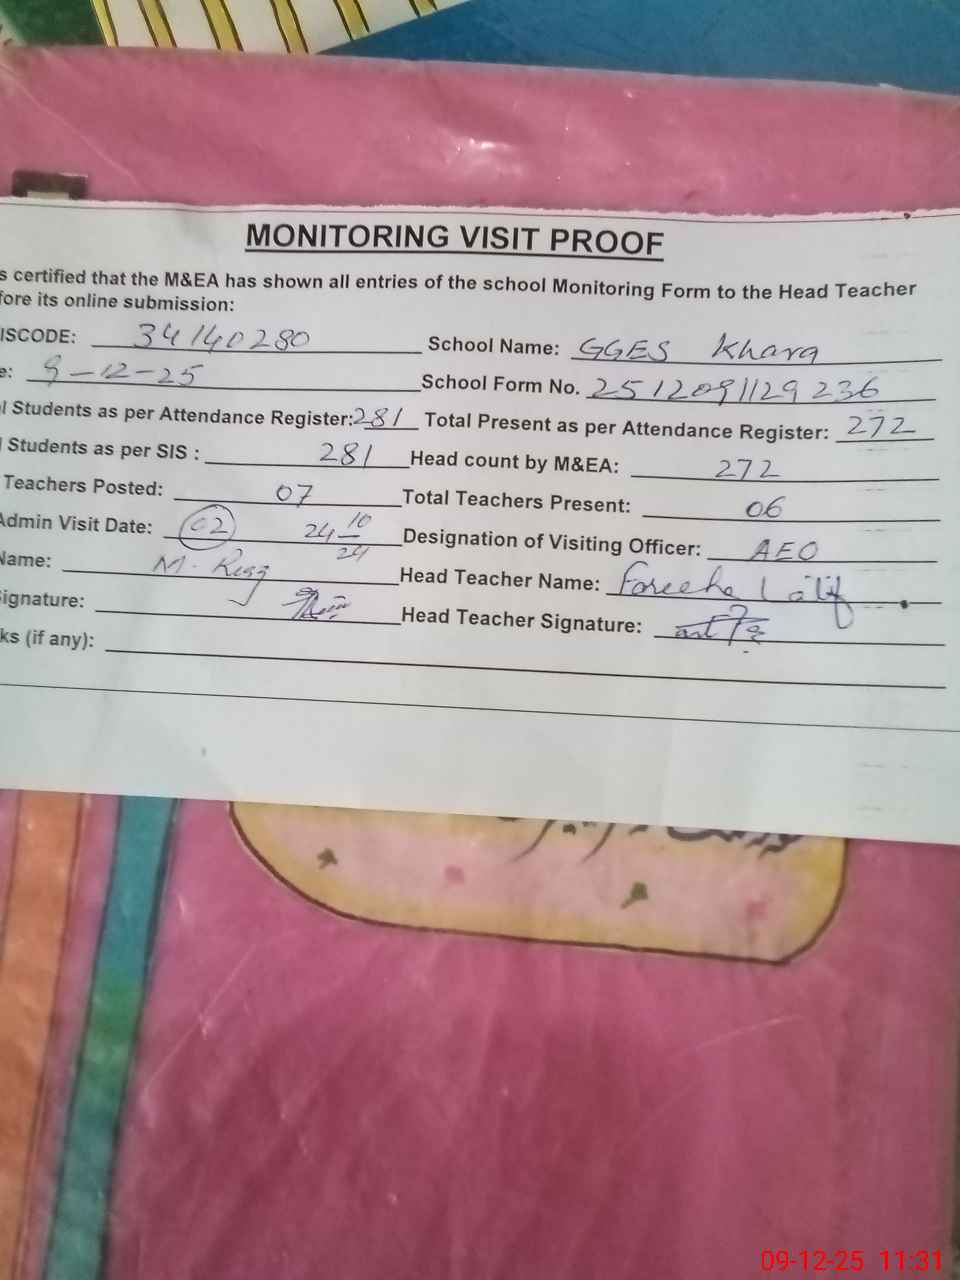 MONITORING VISIT PROOF
s certified that the M&EA has shown all entries of the school Monitoring Form to the Head Teacher
fore its online submission:
ISCODE: 34140280 School Name: GGES Khara
e: 9-12-25 School Form No. 2512091129236
l Students as per Attendance Register: 281 Total Present as per Attendance Register: 272
l Students as per SIS : 281 Head count by M&EA: 272
Teachers Posted: 07 Total Teachers Present: 06
Admin Visit Date: 02 24 10 24 Designation of Visiting Officer: AEO
Name: M. Head Teacher Name: Fareeha Latif
ignature: Head Teacher Signature:
ks (if any):
09-12-25 11:31